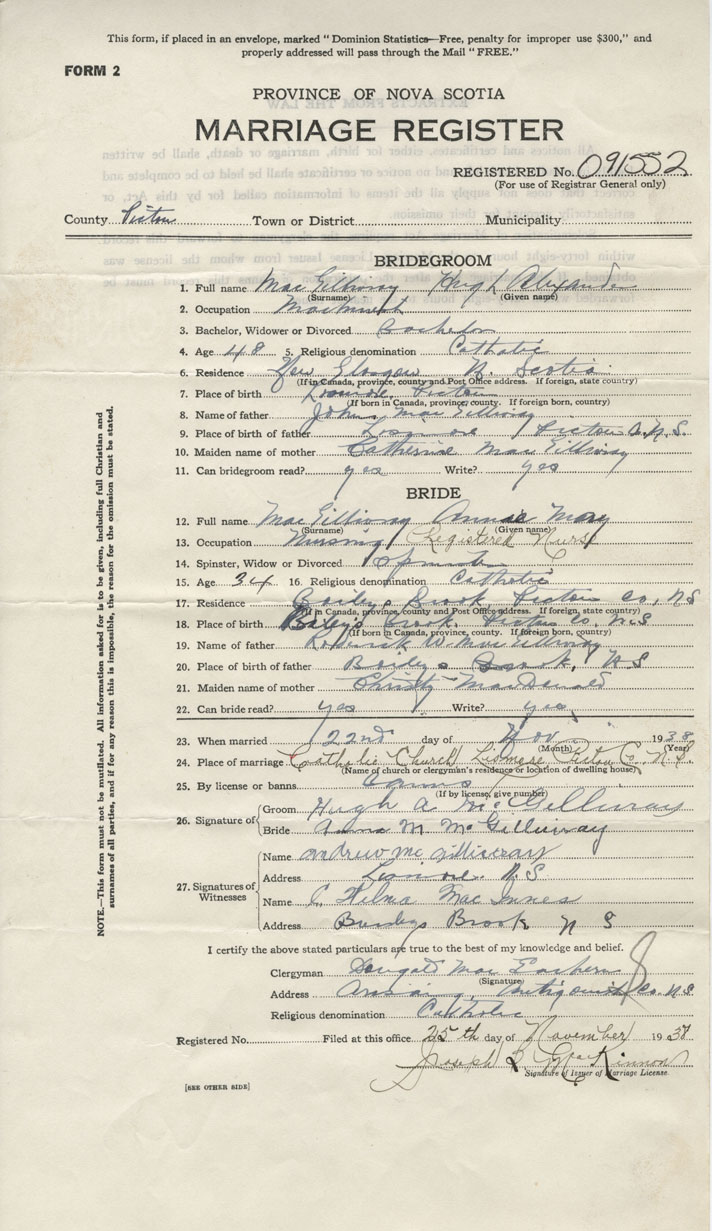 This form, if placed in an envelope, marked "Dominion Statistics—Free, penalty for improper use $300," and
properly addressed will pass through the Mail "FREE."
FORM 2
PROVINCE OF NOVA SCOTIA
MARRIAGE REGISTER
REGISTERED No. 091552
(For use of Registrar General only)
County Pictou Town or District Municipality
BRIDEGROOM
1. Full name MacGillivray Hugh Alexander
(Surname) (Given name)
2. Occupation Machinist
3. Bachelor, Widower or Divorced Bachelor
4. Age 48 5. Religious denomination Catholic
6. Residence New Glasgow N. Scotia
(If in Canada, province, county and Post Office address. If foreign, state country)
7. Place of birth Lismore, Pictou
(If born in Canada, province, county. If foreign born, country)
8. Name of father John MacGillivray
9. Place of birth of father Lismore Pictou Co. N.S.
10. Maiden name of mother Catherine MacGillivray
11. Can bridegroom read? yes Write? yes
BRIDE
12. Full name MacGillivray Annie May
(Surname) (Given name)
13. Occupation Nursing (Registered Nurse)
14. Spinster, Widow or Divorced Spinster
15. Age 34 16. Religious denomination Catholic
17. Residence Baileys Brook, Pictou Co, NS
(If in Canada, province, county and Post Office address. If foreign, state country)
18. Place of birth Baileys Brook, Pictou Co. N.S
(If born in Canada, province, county. If foreign born, country)
19. Name of father Roderick W MacGillivray
20. Place of birth of father Baileys Brook, NS
21. Maiden name of mother Christy MacDonald
22. Can bride read? yes Write? yes
23. When married 22nd day of Nov 1938
(Month) (Year)
24. Place of marriage Catholic Church Lismore Pictou C. N.S.
(Name of church or clergyman's residence or location of dwelling house)
25. By license or banns banns
(If by license, give number)
26. Signature of Groom Hugh A McGillivray
Bride Anna M McGillivray
27. Signatures of Witnesses
Name Andrew McGillivray
Address Lismore N.S
Name C Helma MacInnes
Address Baileys Brook N S
I certify the above stated particulars are true to the best of my knowledge and belief.
Clergyman Dougald MacEachern
(Signature)
Address Arisaig, Antigonish Co. NS
Religious denomination Catholic
Registered No. Filed at this office 25th day of November 1938
Joseph MacKinnon
Signature of Issuer of Marriage License
[SEE OTHER SIDE]
NOTE.—This form must not be mutilated. All information asked for is to be given, including full Christian and
surnames of all parties, and if for any reason this is impossible, the reason for the omission must be stated.